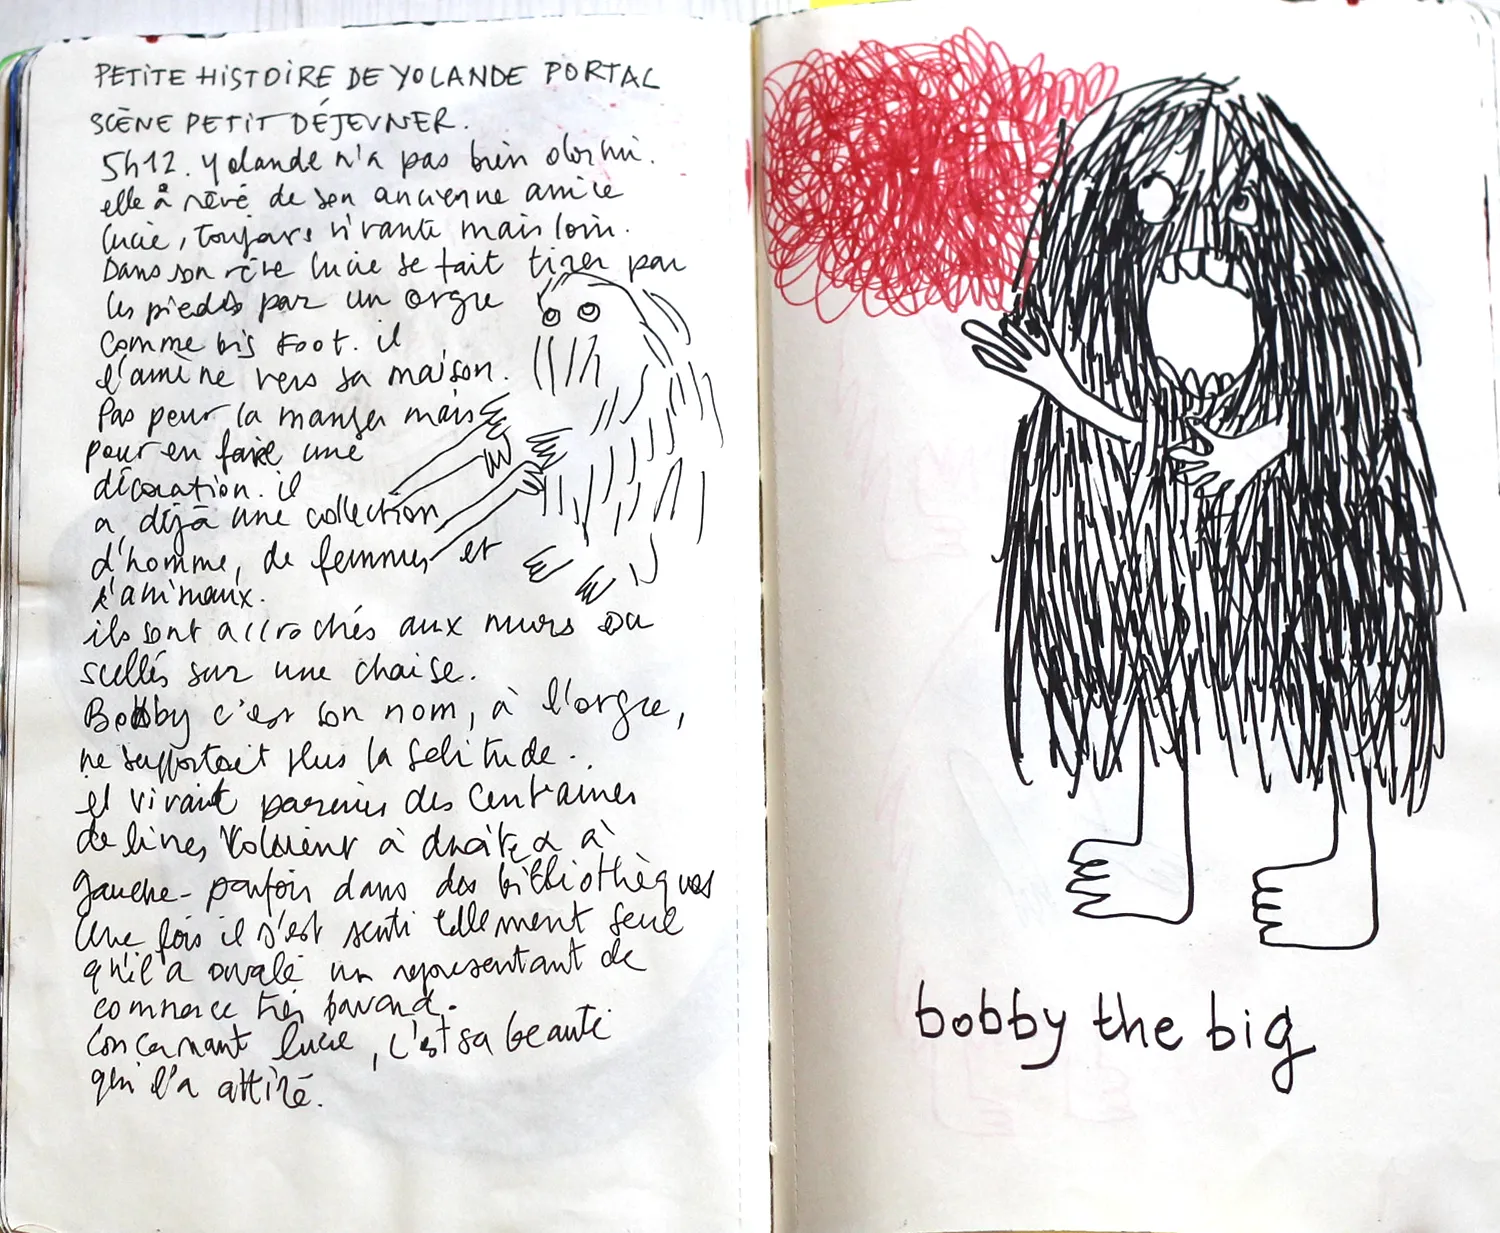 PETITE HISTOIRE DE YOLANDE PORTAL
SCÈNE PETIT DÉJEUNER.
5h12. Yolande n'a pas bien dormi.
elle a rêvé de son ancienne amie
Lucie, toujours vivante mais loin.
Dans son rêve Lucie se fait tirer par
les pieds par un orgre
comme big Foot. il
l'amène vers sa maison.
Pas pour la manger mais
pour en faire une
décoration. il
a déjà une collection
d'homme, de femmes et
d'animaux.
ils sont accrochés aux murs ou
scellés sur une chaise.
Bobby c'est son nom, à l'orgre,
ne supportait plus la solitude.
et vivait parmis des centaines
de livres à droite à
gauche - parfois dans des bibliothèques
Une fois il s'est senti tellement seul
qu'il a avalé un representant de
commerce très bavard.
Concernant Lucie, c'est sa beauté
qui l'a attiré.
bobby the big